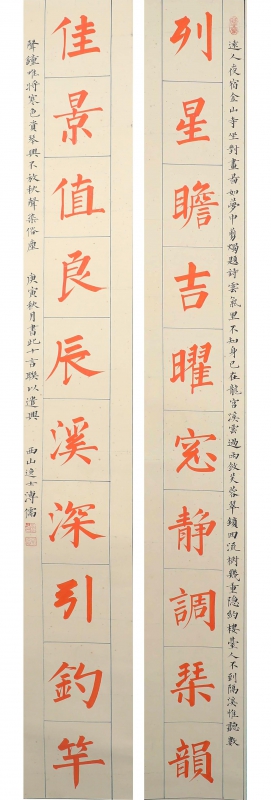 列星瞻吉曜窓静調琴韻
遠人夜宿金山寺坐對畫圖如夢中剪燭題詩雲氣里不知身已在龍宮溪雲過雨斂芙蓉翠鎖四流樹幾重隐約樓臺人不到隔溪惟聽數
佳景值良辰溪深引釣竿
聲鐘唯將寒色賞琴興不放秋聲染俗塵
庚寅秋月書此十言聯以遣興
西山逸士溥儒